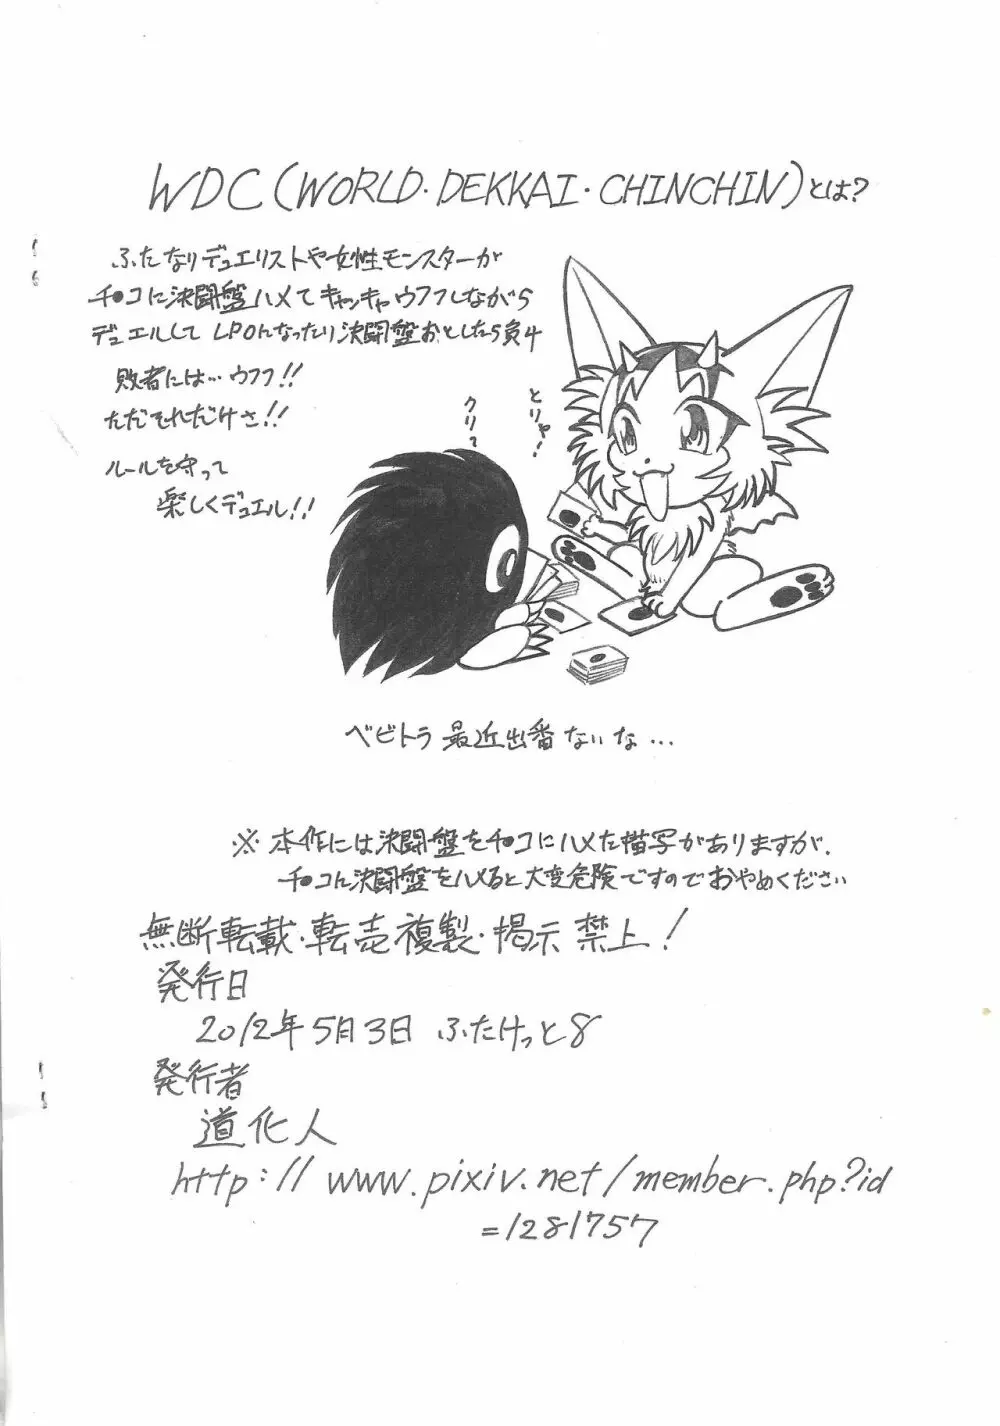 WDC(WORLD・DEKKAI・CHINCHIN)とは?
ふたなりデュエリストや女性モンスターが
チ●コに決闘盤ハメてキャッキャウフフしながら
デュエルしてLP0になったり決闘盤おとしたら負4
敗者には…ウフフ!!
ただそれだけさ!!
ルールを守って
楽しくデュエル!!
とりゃ!
クリ〜
ベビトラ 最近出番ないな…
※本作には決闘盤をチ●コにハメた描写がありますが、
チ●コに決闘盤をハメると大変危険ですのでおやめください
無断転載・転売複製・掲示禁止!
発行日
2012年5月3日 ふたけっと8
発行者
道化人
http://www.pixiv.net/member.php?id
=1281757